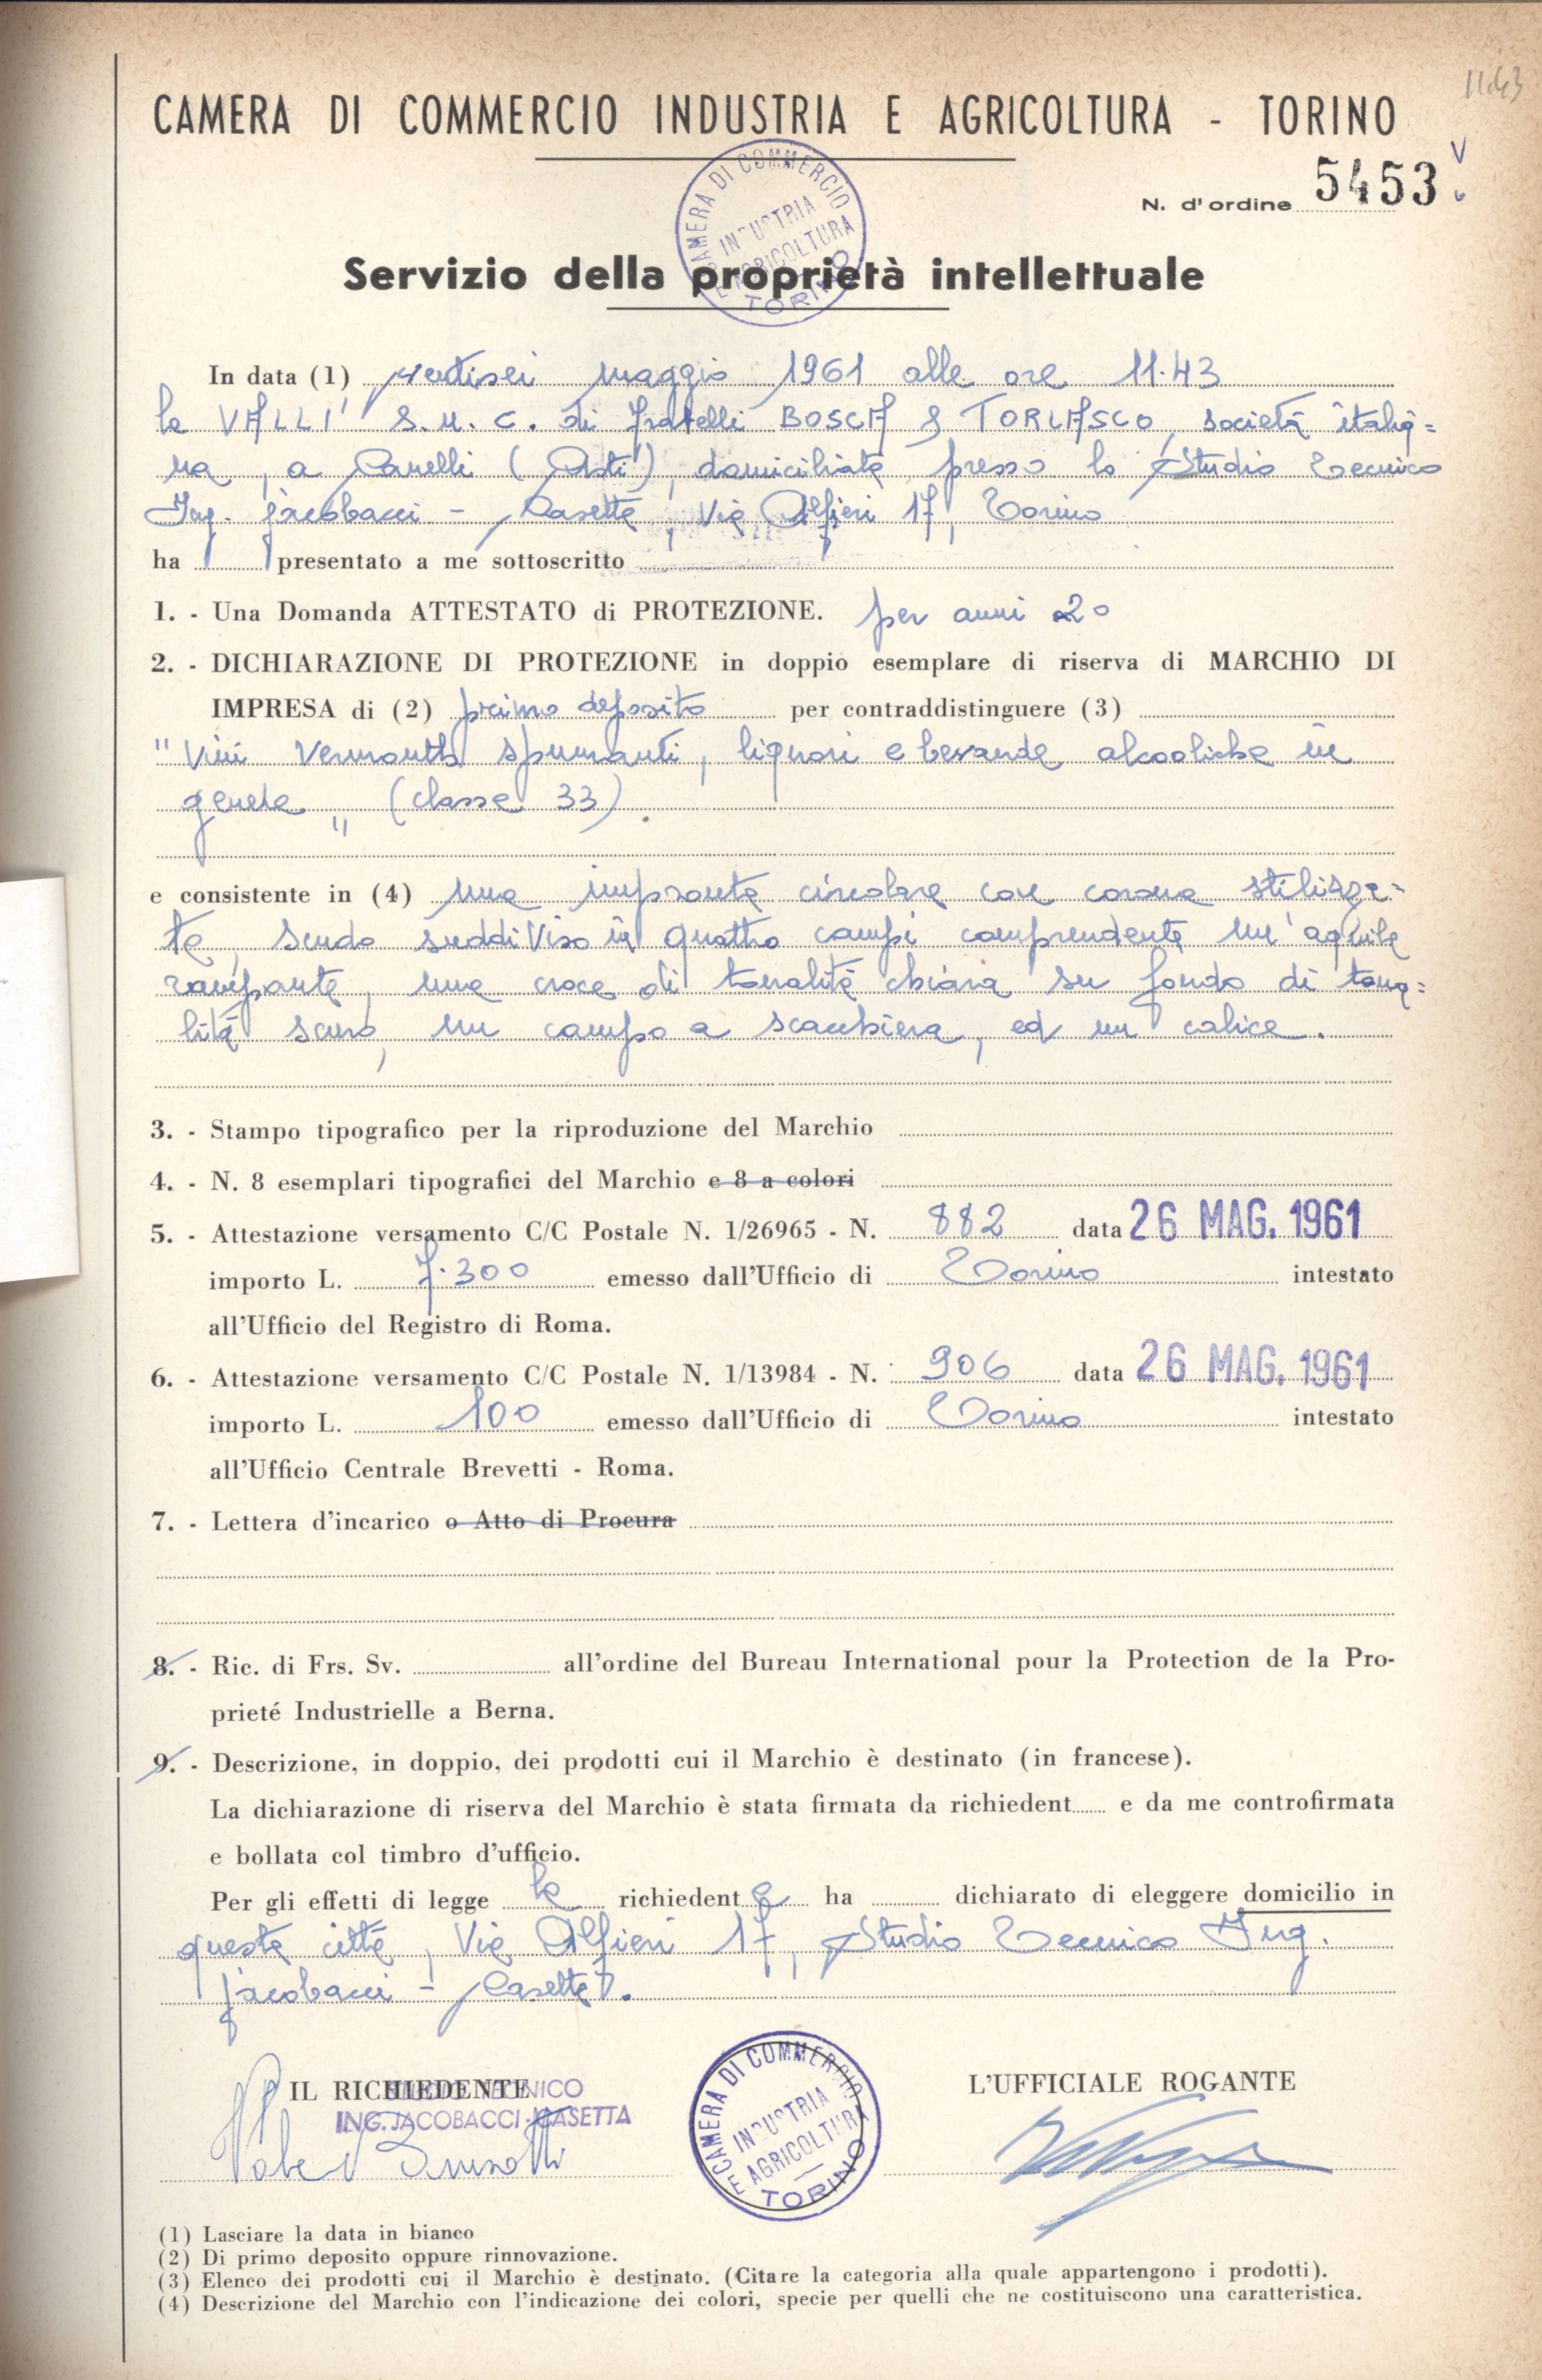 1143
CAMERA DI COMMERCIO INDUSTRIA E AGRICOLTURA - TORINO
N. d'ordine 5453
CAMERA DI COMMERCIO INDUSTRIA E AGRICOLTURA TORINO
Servizio della proprietà intellettuale
In data (1) ventisei maggio 1961 alle ore 11.43
la VALLI' S.N.C. di fratelli BOSCA & TORLASCO, società italia=
na, a Canelli (Asti), domiciliata presso lo Studio Tecnico
Ing. Jacobacci - Casetta, Via Alfieri 17, Torino
ha presentato a me sottoscritto
1. - Una Domanda ATTESTATO di PROTEZIONE. per anni 20
2. - DICHIARAZIONE DI PROTEZIONE in doppio esemplare di riserva di MARCHIO DI
IMPRESA di (2) primo deposito per contraddistinguere (3)
" Vini Vermouth spumanti, liquori e bevande alcooliche in
genere " (classe 33)
e consistente in (4) una impronta circolare con corona stilizza=
ta, scudo suddiviso in quattro campi comprendente un'aquila
rampante, una croce di tonalità chiara su fondo di tona=
lità scura, un campo a scacchiera, ed un calice.
3. - Stampo tipografico per la riproduzione del Marchio
4. - N. 8 esemplari tipografici del Marchio e 8 a colori
5. - Attestazione versamento C/C Postale N. 1/26965 - N. 882 data 26 MAG. 1961
importo L. 7.300 emesso dall'Ufficio di Torino intestato
all'Ufficio del Registro di Roma.
6. - Attestazione versamento C/C Postale N. 1/13984 - N. 906 data 26 MAG. 1961
importo L. 100 emesso dall'Ufficio di Torino intestato
all'Ufficio Centrale Brevetti - Roma.
7. - Lettera d'incarico o Atto di Procura
8. - Ric. di Frs. Sv. all'ordine del Bureau International pour la Protection de la Pro-
prieté Industrielle a Berna.
9. - Descrizione, in doppio, dei prodotti cui il Marchio è destinato (in francese).
La dichiarazione di riserva del Marchio è stata firmata da richiedent e da me controfirmata
e bollata col timbro d'ufficio.
Per gli effetti di legge la richiedente ha dichiarato di eleggere domicilio in
questa città, Via Alfieri 17, Studio Tecnico Ing.
Jacobacci - Casetta.
IL RICHIEDENTE
ING. JACOBACCI - CASETTA
CAMERA DI COMMERCIO INDUSTRIA E AGRICOLTURA TORINO
L'UFFICIALE ROGANTE
(1) Lasciare la data in bianco
(2) Di primo deposito oppure rinnovazione.
(3) Elenco dei prodotti cui il Marchio è destinato. (Citare la categoria alla quale appartengono i prodotti).
(4) Descrizione del Marchio con l'indicazione dei colori, specie per quelli che ne costituiscono una caratteristica.